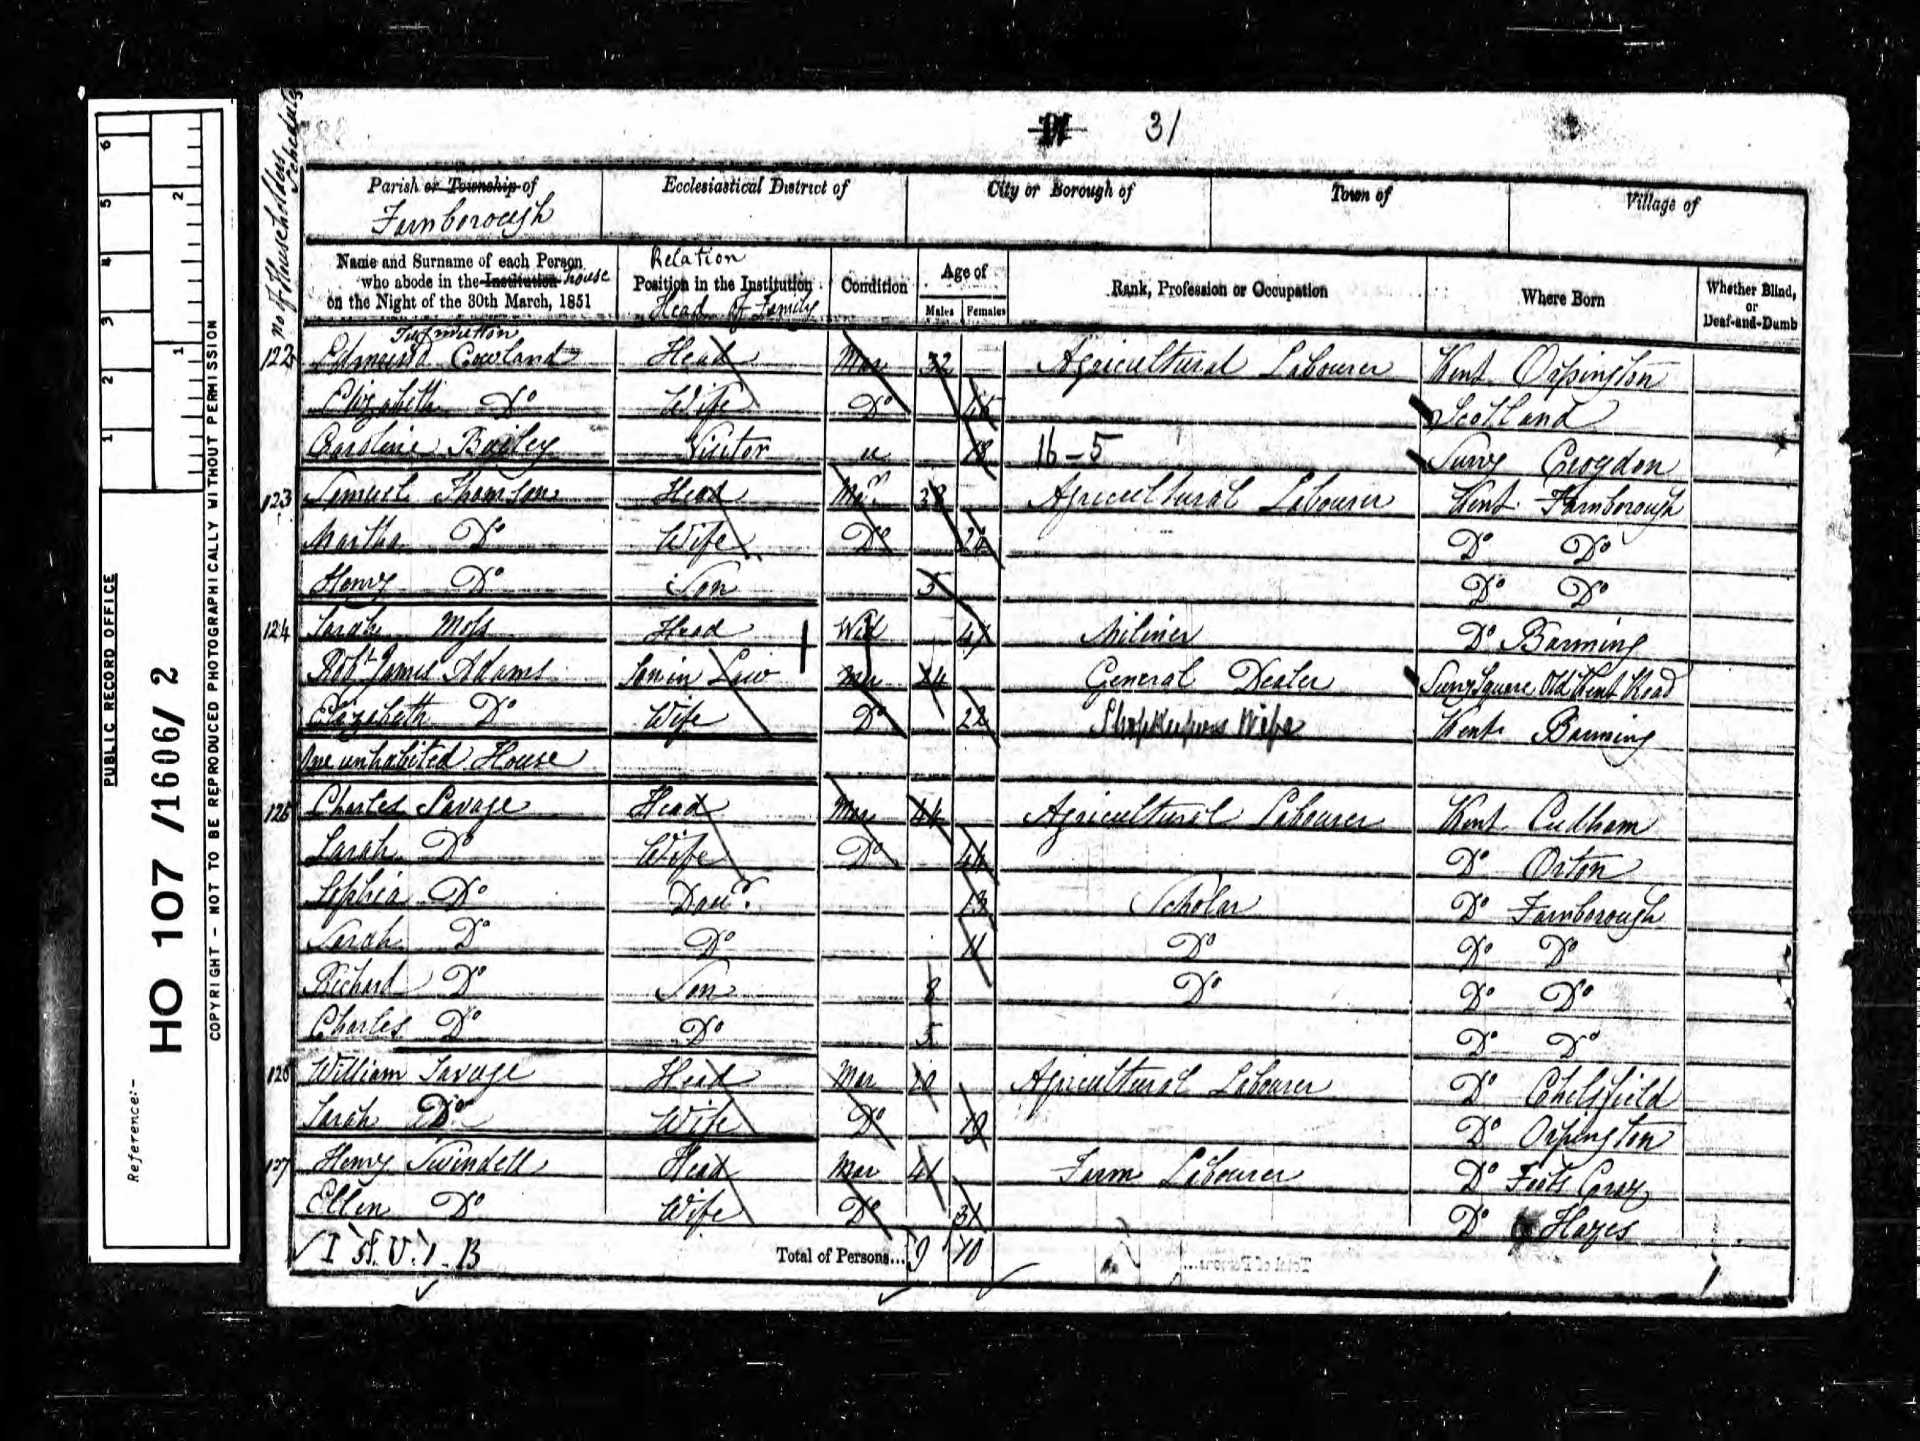 31
Parish or Township of
Farnborough
Ecclesiastical District of
City or Borough of
Town of
Village of
No of Householders Schedule
Name and Surname of each Person who abode in the Institution house on the Night of the 30th March, 1851
Relation
Position in the Institution
Head of Family
Condition
Age of
Males
Females
Rank, Profession or Occupation
Where Born
Whether Blind, or Deaf-and-Dumb
122 Edmund Cowland Head Mar 32 Agricultural Labourer Kent Orpington
Elizabeth Do Wife Do Scotland
Caroline Bailey Visitor u 18 16-5 Surry Croydon
123 Samuel Thomson Head Mar 38 Agricultural Labourer Kent Farnborough
Martha Do Wife Do Do Do
Henry Do Son 5 Do Do
124 Sarah Moss Head Wid 47 Miliner Do Barming
Robt James Adams Son in Law Mar 24 General Dealer Surry Square Old Kent Road
Elizabeth Do Wife Do 22 Shopkeepers Wife Kent Barming
One unhabited House
125 Charles Savage Head Mar 44 Agricultural Labourer Kent Cudham
Sarah Do Wife Do 44 Do Orton
Sophia Do Daur 13 Scholar Do Farnborough
Sarah Do Do 11 Do Do Do
Richard Do Son 8 Do Do Do
Charles Do Do 5 Do Do
126 William Savage Head Mar 20 Agricultural Labourer Do Chelsfield
Sarah Do Wife Do 19 Do Orpington
127 Henry Swindell Head Mar 41 Farm Labourer Do Foots Cray
Ellen Do Wife Do 31 Do Hayes
Total of Persons... 9 10
PUBLIC RECORD OFFICE
Reference:-
HO 107/1606/2
COPYRIGHT - NOT TO BE REPRODUCED PHOTOGRAPHICALLY WITHOUT PERMISSION
1
2
3
4
5
6
1
2